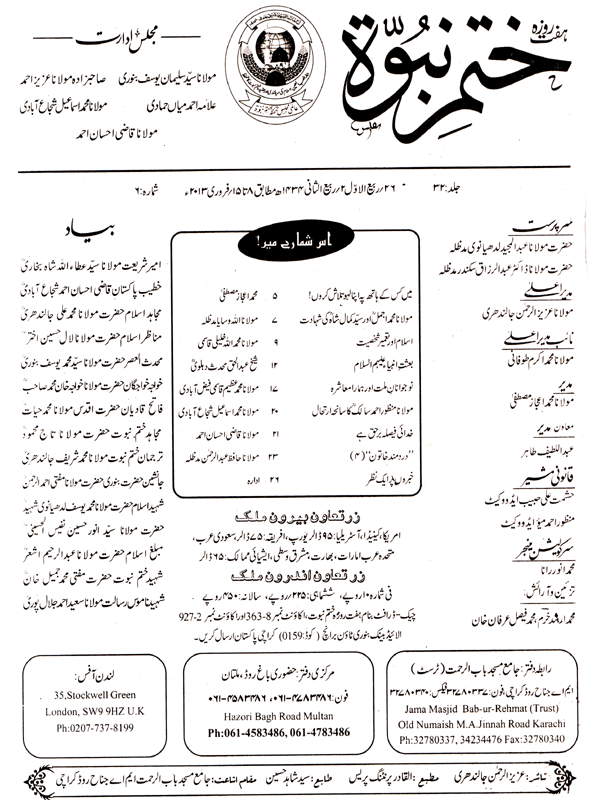 ہفت روزہ
ختم نبوۃ
مجلس ادارت
مولانا سید سلیمان یوسف بنوری صاحبزادہ مولانا عزیز احمد
علامہ احمد میاں حمادی مولانا محمد اسماعیل شجاع آبادی
مولانا قاضی احسان احمد
جلد: ۳۲ ۲۶/ربیع الاوّل تا ۲/ربیع الثانی ۱۴۳۴ھ مطابق ۸ تا ۱۵/فروری ۲۰۱۳ء شمارہ: ۶
سرپرست
حضرت مولانا عبدالمجید لدھیانوی مدظلہ
حضرت مولانا ڈاکٹر عبدالرزاق سکندر مدظلہ
مدیر اعلیٰ
مولانا عزیز الرحمٰن جالندھری
نائب مدیر اعلیٰ
مولانا محمد اکرم طوفانی
مدیر
مولانا محمد اعجاز مصطفیٰ
معاون مدیر
عبداللطیف طاہر
قانونی مشیر
حشمت علی حبیب ایڈووکیٹ
منظور احمد میؤ ایڈووکیٹ
سرکولیشن منیجر
محمد انور رانا
تزئین و آرائش:
محمد ارشد خرم، محمد فیصل عرفان خان
اس شمارے میں!
میں کس کے ہاتھ پہ اپنا لہو تلاش کروں! ۵ محمد اعجاز مصطفیٰ
مولانا محمد اجمل اور سید کمال شاہ کی شہادت ۷ مولانا اللہ وسایا مدظلہ
اسلام اور تعمیر شخصیت ۹ مولانا محمد اللہ خلیلی قاسمی
بعثت انبیاء علیہم السلام ۱۲ شیخ عبدالحق محدث دہلویؒ
نوجوانانِ ملت اور ہمارا معاشرہ ۱۷ مولانا محمد عظیم قاسمی فیض آبادی
مولانا منظور احمد سالک کا سانحہ ارتحال ۲۰ مولانا محمد اسماعیل شجاع آبادی
خدائی فیصلہ برحق ہے ۲۱ مولانا قاضی احسان احمد
"دردمند خاتون" (۴) ۲۳ مولانا حافظ عبدالرحمٰن مدظلہ
خبروں پر ایک نظر ۲۶ ادارہ
زر تعاون بیرون ملک
امریکا، کینیڈا، آسٹریلیا: ۹۵ ڈالر یورپ، افریقہ: ۷۵ ڈالر، سعودی عرب،
متحدہ عرب امارات، بھارت، مشرق وسطیٰ، ایشیائی ممالک: ۶۵ ڈالر
زر تعاون اندرون ملک
فی شمارہ ۱۰ روپے، ششماہی: ۲۲۵ روپے، سالانہ: ۴۵۰ روپے
چیک-ڈرافٹ بنام ہفت روزہ ختم نبوت، اکاؤنٹ نمبر 8-363 اور اکاؤنٹ نمبر 2-927
الائیڈ بینک بنوری ٹاؤن برانچ (کوڈ: 0159) کراچی پاکستان ارسال کریں۔
بیاد
امیر شریعت مولانا سید عطاء اللہ شاہ بخاریؒ
خطیب پاکستان قاضی احسان احمد شجاع آبادیؒ
مجاہد اسلام حضرت مولانا محمد علی جالندھریؒ
مناظر اسلام حضرت مولانا لال حسین اخترؒ
محدث العصر حضرت مولانا سید محمد یوسف بنوریؒ
خواجہ خواجگان حضرت مولانا خواجہ خان محمد صاحبؒ
فاتح قادیان حضرت اقدس مولانا محمد حیاتؒ
مجاہد ختم نبوت حضرت مولانا تاج محمودؒ
ترجمان ختم نبوت حضرت مولانا محمد شریف جالندھریؒ
جانشین حضرت بنوری حضرت مولانا مفتی احمد الرحمٰنؒ
شہید اسلام حضرت مولانا محمد یوسف لدھیانوی شہیدؒ
حضرت مولانا سید انور حسین نفیس الحسینیؒ
مبلغ اسلام حضرت مولانا عبدالرحیم اشعرؒ
شہید ختم نبوت حضرت مفتی محمد جمیل خانؒ
شہید ناموس رسالت مولانا سعید احمد جلال پوریؒ
رابطہ دفتر: جامع مسجد باب الرحمت (ٹرسٹ)
ایم اے جناح روڈ کراچی، فون: ۳۲۷۸۰۳۳۷ فیکس: ۳۲۷۸۰۳۴۰
Jama Masjid Bab-ur-Rehmat (Trust)
Old Numaish M.A.Jinnah Road Karachi
Ph:32780337, 34234476 Fax:32780340
مرکزی دفتر: حضوری باغ روڈ، ملتان
فون: ۰۶۱-۴۷۸۳۴۸۶، ۰۶۱-۴۵۸۳۴۸۶
Hazori Bagh Road Multan
Ph:061-4583486, 061-4783486
لندن آفس:
35,Stockwell Green
London, SW9 9HZ U.K
Ph:0207-737-8199
ناشر: عزیز الرحمٰن جالندھری مطبع: القادر پرنٹنگ پریس طابع: سید شاہد حسین مقام اشاعت: جامع مسجد باب الرحمت ایم اے جناح روڈ کراچی